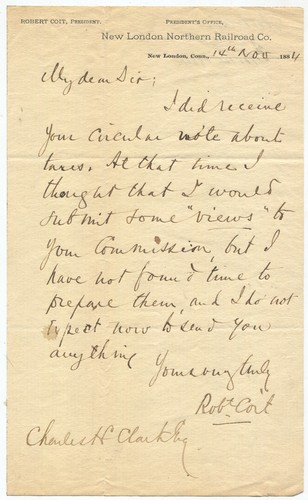 ROBERT COIT, PRESIDENT.
PRESIDENT'S OFFICE,
New London Northern Railroad Co.
New London, Conn., 14th Nov 1884
My dear Sir:
I did receive
your circular note about
taxes. At that time I
thought that I would
submit some "views" to
your Commission, but I
have not found time to
prepare them, and I do not
expect now to send you
anything
Yours very truly
Robt. Coit
Charles H. Clark Esq